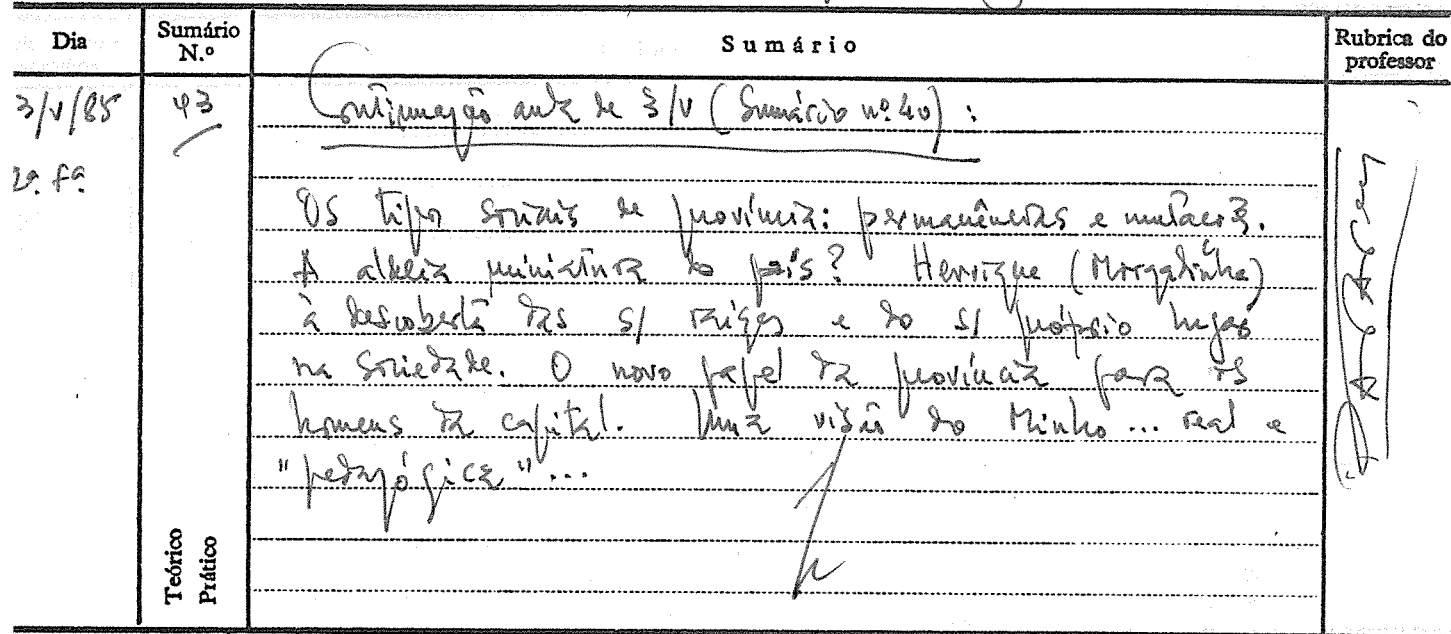 Dia
Sumário N.º
Sumário
Rubrica do professor
3/V/85
43
2ª. fª.
Continuação aula de 3/V (Sumário nº 40) :
Os tipos sociais de província: permanências e mutações.
A aldeia miniatura do país? Henrique (Morgadinha)
à descoberta das s/ raízes e do s/ próprio lugar
na sociedade. O novo papel da província para os
homens da capital. Uma visão do Minho... real e
"pedagógica"...
Teórico
Prático